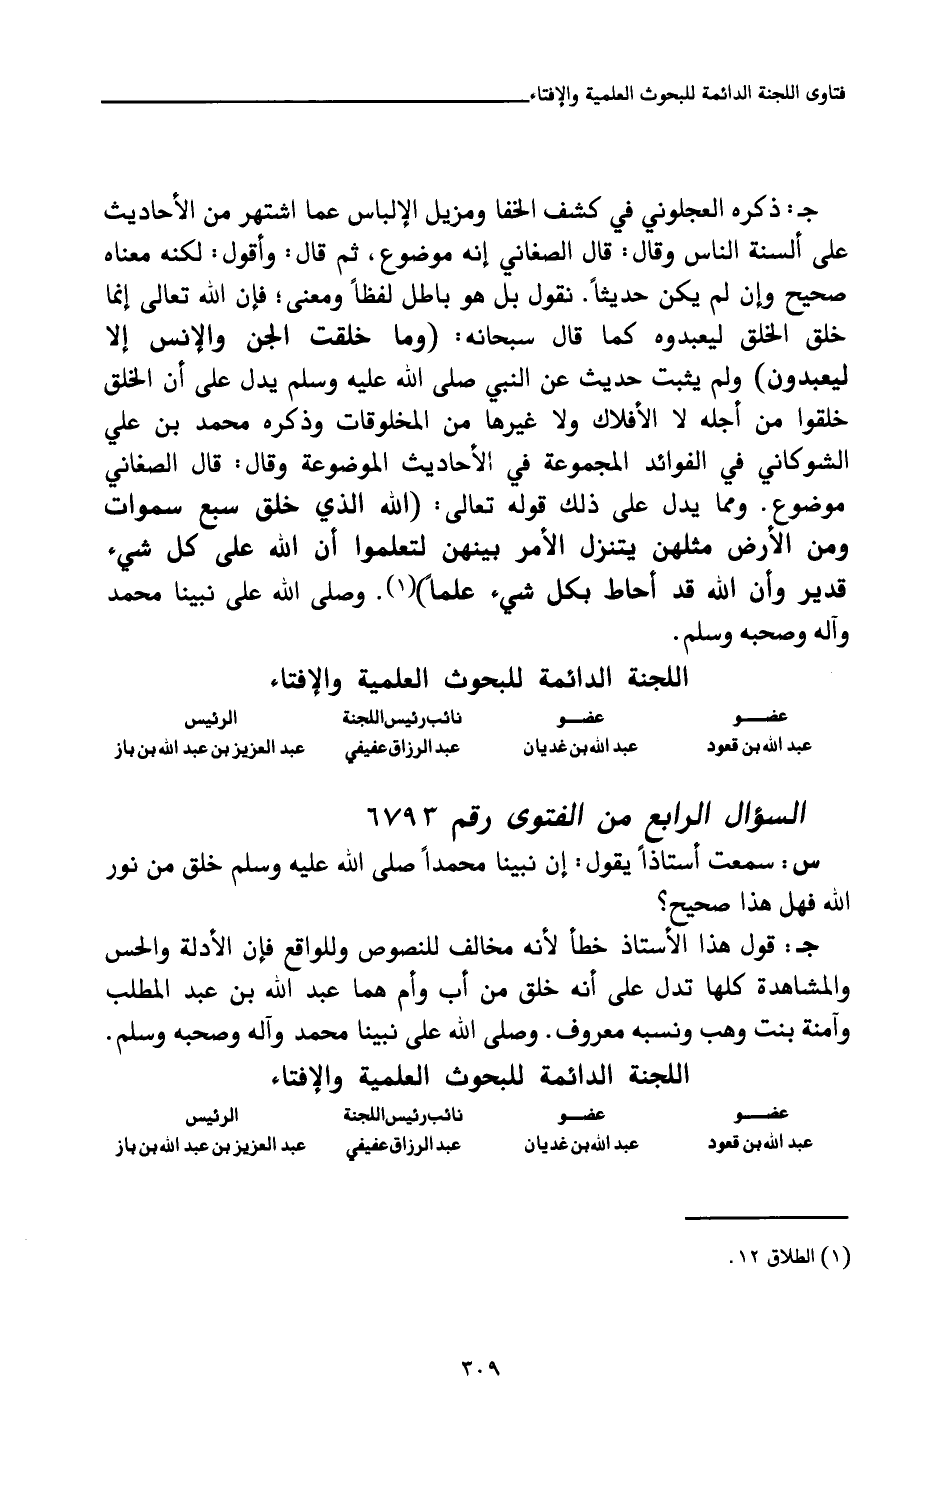 فتاوى اللجنة الدائمة للبحوث العلمية والإفتاء
جـ: ذكره العجلوني في كشف الخفا ومزيل الإلباس عما اشتهر من الأحاديث
على ألسنة الناس وقال: قال الصغاني إنه موضوع، ثم قال: وأقول: لكنه معناه
صحيح وإن لم يكن حديثاً. نقول بل هو باطل لفظاً ومعنى؛ فإن الله تعالى إنما
خلق الخلق ليعبدوه كما قال سبحانه: (وما خلقت الجن والإنس إلا
ليعبدون) ولم يثبت حديث عن النبي صلى الله عليه وسلم يدل على أن الخلق
خلقوا من أجله لا الأفلاك ولا غيرها من المخلوقات وذكره محمد بن علي
الشوكاني في الفوائد المجموعة في الأحاديث الموضوعة وقال: قال الصغاني
موضوع. ومما يدل على ذلك قوله تعالى: (الله الذي خلق سبع سموات
ومن الأرض مثلهن يتنزل الأمر بينهن لتعلموا أن الله على كل شيء
قدير وأن الله قد أحاط بكل شيء علماً)(١). وصلى الله على نبينا محمد
وآله وصحبه وسلم.
اللجنة الدائمة للبحوث العلمية والإفتاء
عضـــو عضـــو نائب رئيس اللجنة الرئيس
عبد الله بن قعود عبد الله بن غديان عبد الرزاق عفيفي عبد العزيز بن عبد الله بن باز
السؤال الرابع من الفتوى رقم ٦٧٩٣
س: سمعت أستاذاً يقول: إن نبينا محمداً صلى الله عليه وسلم خلق من نور
الله فهل هذا صحيح؟
جـ: قول هذا الأستاذ خطأ لأنه مخالف للنصوص وللواقع فإن الأدلة والحس
والمشاهدة كلها تدل على أنه خلق من أب وأم هما عبد الله بن عبد المطلب
وآمنة بنت وهب ونسبه معروف. وصلى الله على نبينا محمد وآله وصحبه وسلم.
اللجنة الدائمة للبحوث العلمية والإفتاء
عضـــو عضـــو نائب رئيس اللجنة الرئيس
عبد الله بن قعود عبد الله بن غديان عبد الرزاق عفيفي عبد العزيز بن عبد الله بن باز
(١) الطلاق ١٢.
٣٠٩